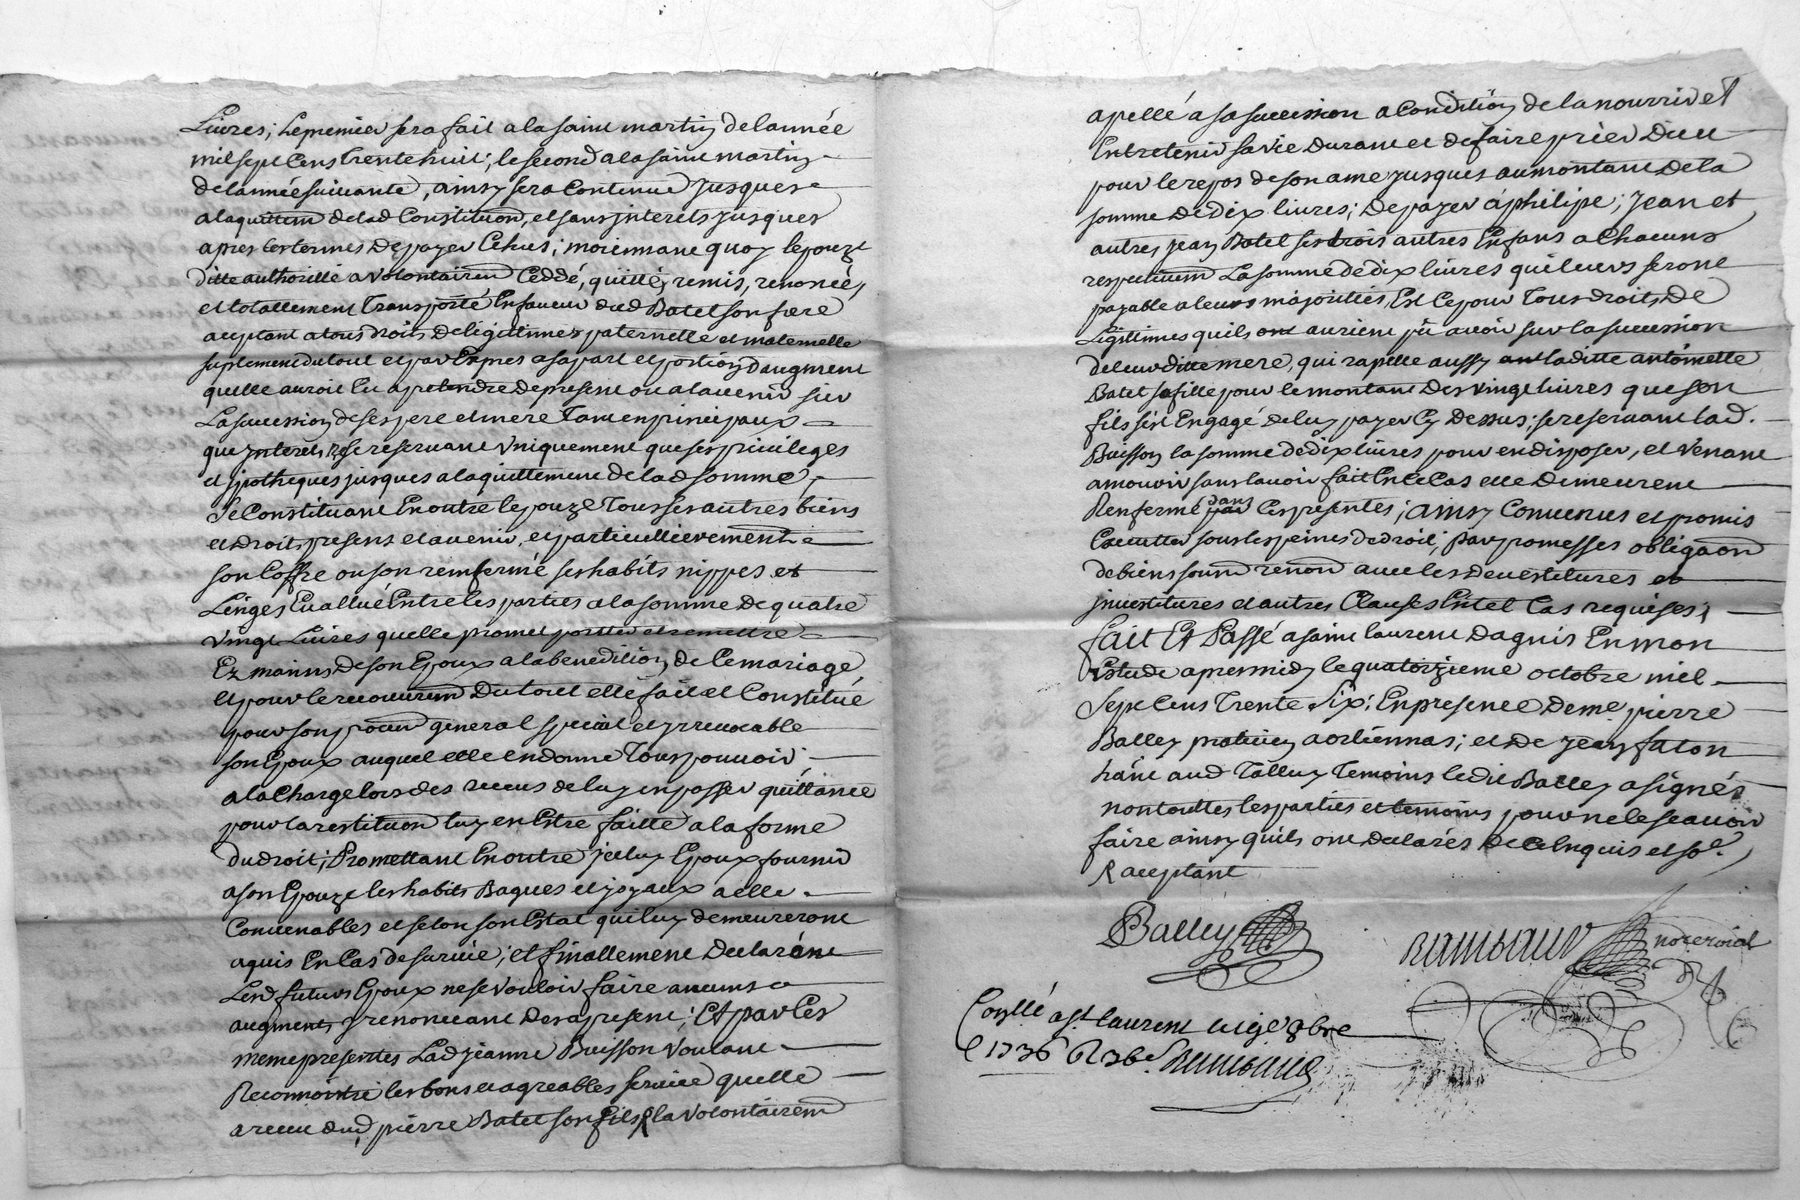 Livres; le premier sera fait a la saint martin de lannée
mil sept cens trente huit; le second a la saint martin
de lannée suivante, ainsy sera continué jusques
alaquittem de lad Constitution, et sans jnterets jusques
apres les termes de payer Echus; moiennant quoy lepouze
ditte authorisée a volontairem Ceddé, quitté, remis, renoncé,
et totallement Transporté En faveur dud Batet son frere
aceptant a tous droits de legittimes paternelle et maternelle
suplement du tout et par Expres a sa part et portion daugment
quelle auroit Eu a pretendre de present ou a lavenir sur
La succession de ses pere et mere Tant en principaux
que jnterets, se reservant uniquement que ses privileges
et jpotheques jusques a laquittement de lad somme,
Se Constituant En outre lepouze Tous ses autres biens
et droits presens et avenir, et particullierement
son Coffre ou son remfermé ses habits nippes et
Linges Evallué Entre les parties a la somme de quatre
vingt Livres quelle promet porter et remettre
Ez mains de son Epoux a la benediction de Ce mariage
et pour le recouvrem du tout elle fait et Constitué
pour son procur general special et jrrevocable
son Epoux auquel elle en donne Tous pouvoir
a la Charge lors des receus de luy en passer quittance
pour la restitution luy en Estre faitte a la forme
du droit; Promettant En outre jcelluy Epoux fournir
a son Epouze les habits Bagues et joyaux a elle
Convenables et selon son Estat qui luy demeureront
aquis En Cas de survie; et finallement declarant
Lesd futurs Epoux ne se vouloir faire aucuns
augments y renoncant des a present; Et par les
meme presentes Lad jeanne Buisson voulant
Reconnoistre les bons et agreables service quelle
a receu dud pierre Batet son fils la volontairem
apellé a sa succession a Condition de la nourrir et
Entretenir sa vie durant et de faire prier Dieu
pour le repos de son ame jusques au montant de la
somme de dix livres; De payer a philipe, Jean et
autres jean Batet ses trois autres Enfans a Chacuns
respectivem La somme de dix livres qui leurs seront
payable a leurs majorités, Est Ce pour Tous droits de
Legittimes quils ont auroient pû avoir sur la succession
de leur ditte mere, qui rapelle aussy laditte antoinette
Batet sa fille pour le montant des vingt livres que son
fils sest Engagé de luy payer Cy Dessus; se reservant lad.
Buisson la somme de dix livres pour en disposer, et venant
a mourir sans lavoir fait En Ce Cas elle demeurent
Renfermé dans Ces presentes; ainsy Convenus et promis
Executter sous les peines de droit; par promesses obligaon
de biens soum renon avec les devestitures et
jnvestitures et autres Clauses En tel Cas requises,
fait Et Passé a saint laurent dagnis En mon
Estude apres midy le quatorzieme octobre mil
Sept Cens Trente Six; En presence de me pierre
Balley praticien a ; et de jean faton
aud Talluy Temoins ledit Balley a signés
non touttes les parties et temoins pour ne le scavoir
faire ainsy quils ont declarés de Ce Enquis et so.
aceptant
Balley
not royal
Conllé a st laurent le 8bre
1736